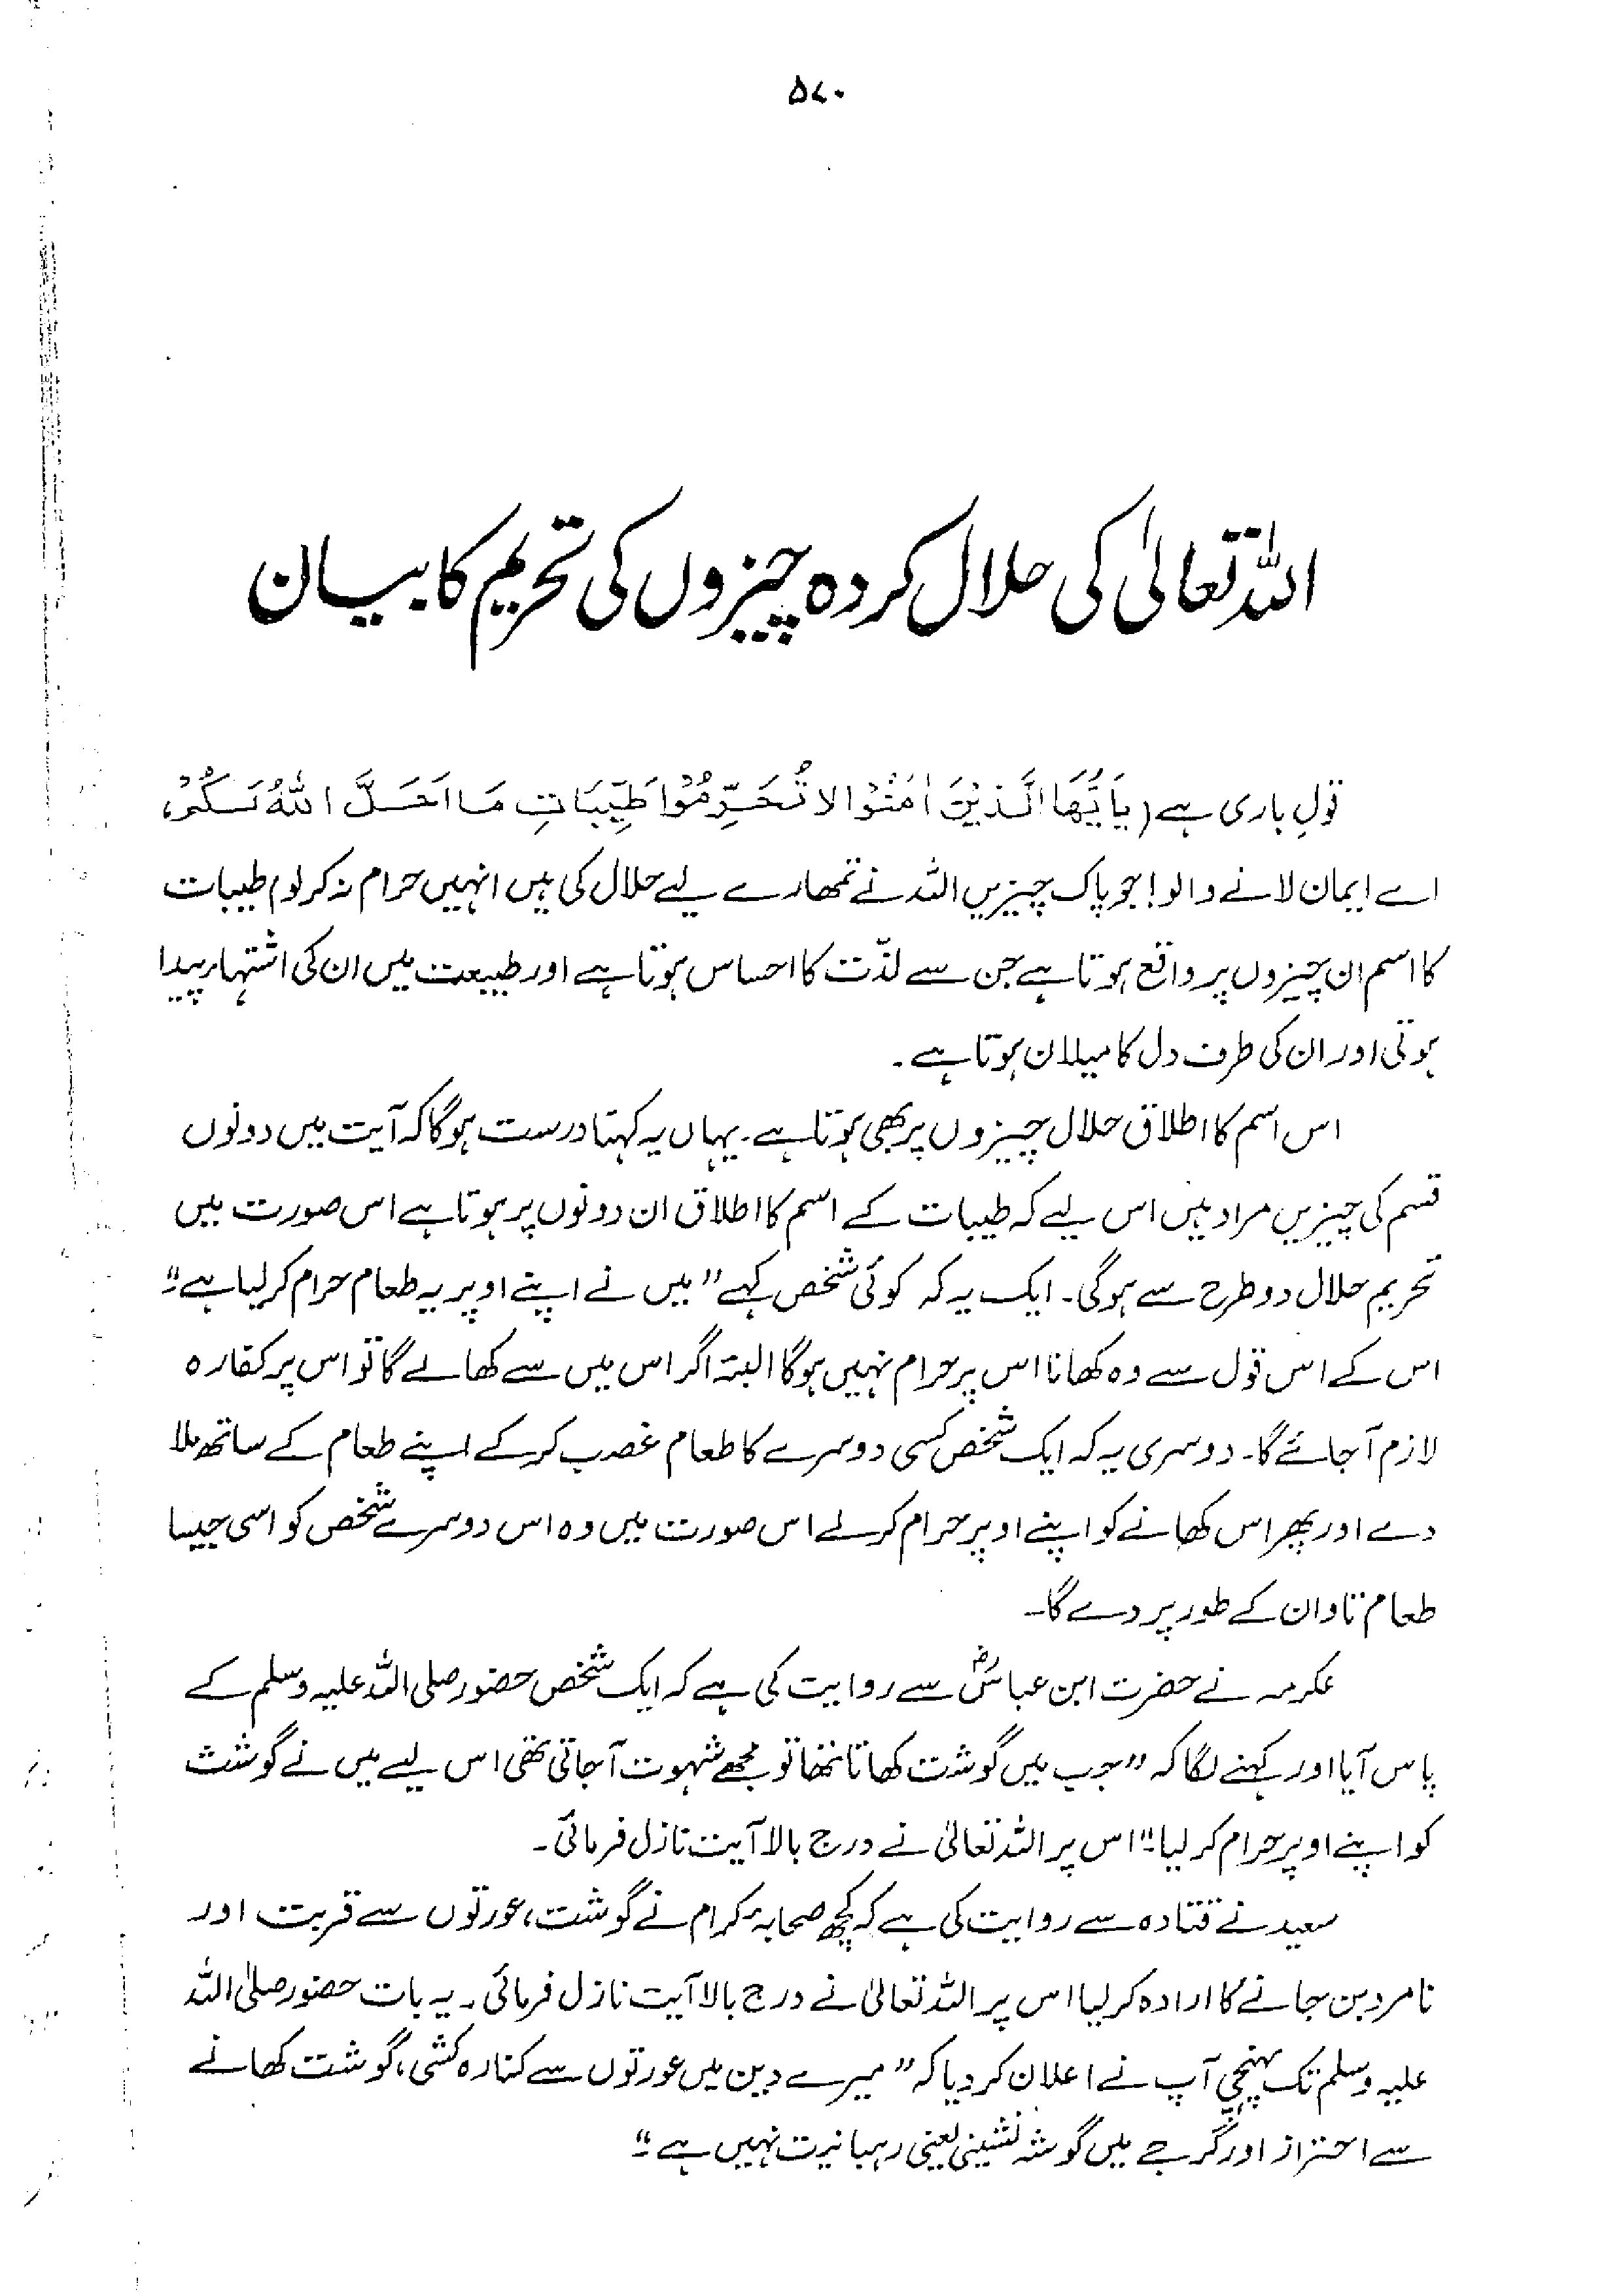 ۵۷۰
اللہ تعالیٰ کی حلال کردہ چیزوں کی تحریم کا بیان
قولِ باری ہے (یٰٓاَیُّھَا الَّذِیْنَ اٰمَنُوْا لَا تُحَرِّمُوْا طَیِّبَاتِ مَا اَحَلَّ اللہُ لَکُمْ،
اے ایمان لانے والو! جو پاک چیزیں اللہ نے تمھارے لیے حلال کی ہیں انہیں حرام نہ کرلو) طیبات
کا اسم ان چیزوں پر واقع ہوتا ہے جن سے لذّت کا احساس ہوتا ہے اور طبیعت میں ان کی اشتہاء پیدا
ہوتی اور ان کی طرف دل کا میلان ہوتا ہے۔
اس اسم کا اطلاق حلال چیزوں پر بھی ہوتا ہے۔ یہاں یہ کہنا درست ہوگا کہ آیت میں دونوں
قسم کی چیزیں مراد ہیں اس لیے کہ طیبات کے اسم کا اطلاق ان دونوں پر ہوتا ہے اس صورت میں
تحریم حلال دو طرح سے ہوگی۔ ایک یہ کہ کوئی شخص کہے "میں نے اپنے اوپر یہ طعام حرام کرلیا ہے"
اس کے اس قول سے وہ کھانا اس پر حرام نہیں ہوگا البتہ اگر اس میں سے کھالے گا تو اس پر کفارہ
لازم آجائے گا۔ دوسری یہ کہ ایک شخص کسی دوسرے کا طعام غصب کرکے اپنے طعام کے ساتھ ملا
دے اور پھر اس کھانے کو اپنے اوپر حرام کرلے اس صورت میں وہ اس دوسرے شخص کو اسی جیسا
طعام تاوان کے طور پر دے گا۔
عکرمہ نے حضرت ابن عباسؓ سے روایت کی ہے کہ ایک شخص حضور صلی اللہ علیہ وسلم کے
پاس آیا اور کہنے لگا کہ "جب میں گوشت کھاتا تھا تو مجھے شہوت آجاتی تھی اس لیے میں نے گوشت
کو اپنے اوپر حرام کرلیا" اس پر اللہ تعالیٰ نے درج بالا آیت نازل فرمائی۔
سعید نے قتادہ سے روایت کی ہے کہ کچھ صحابہ کرام نے گوشت، عورتوں سے قربت اور
نامرد بن جانے کا ارادہ کرلیا اس پر اللہ تعالیٰ نے درج بالا آیت نازل فرمائی۔ یہ بات حضور صلی اللہ
علیہ وسلم تک پہنچی آپ نے اعلان کردیا کہ "میرے دین میں عورتوں سے کنارہ کشی، گوشت کھانے
سے احتراز اور گرجے میں گوشہ نشینی یعنی رہبانیت نہیں ہے"